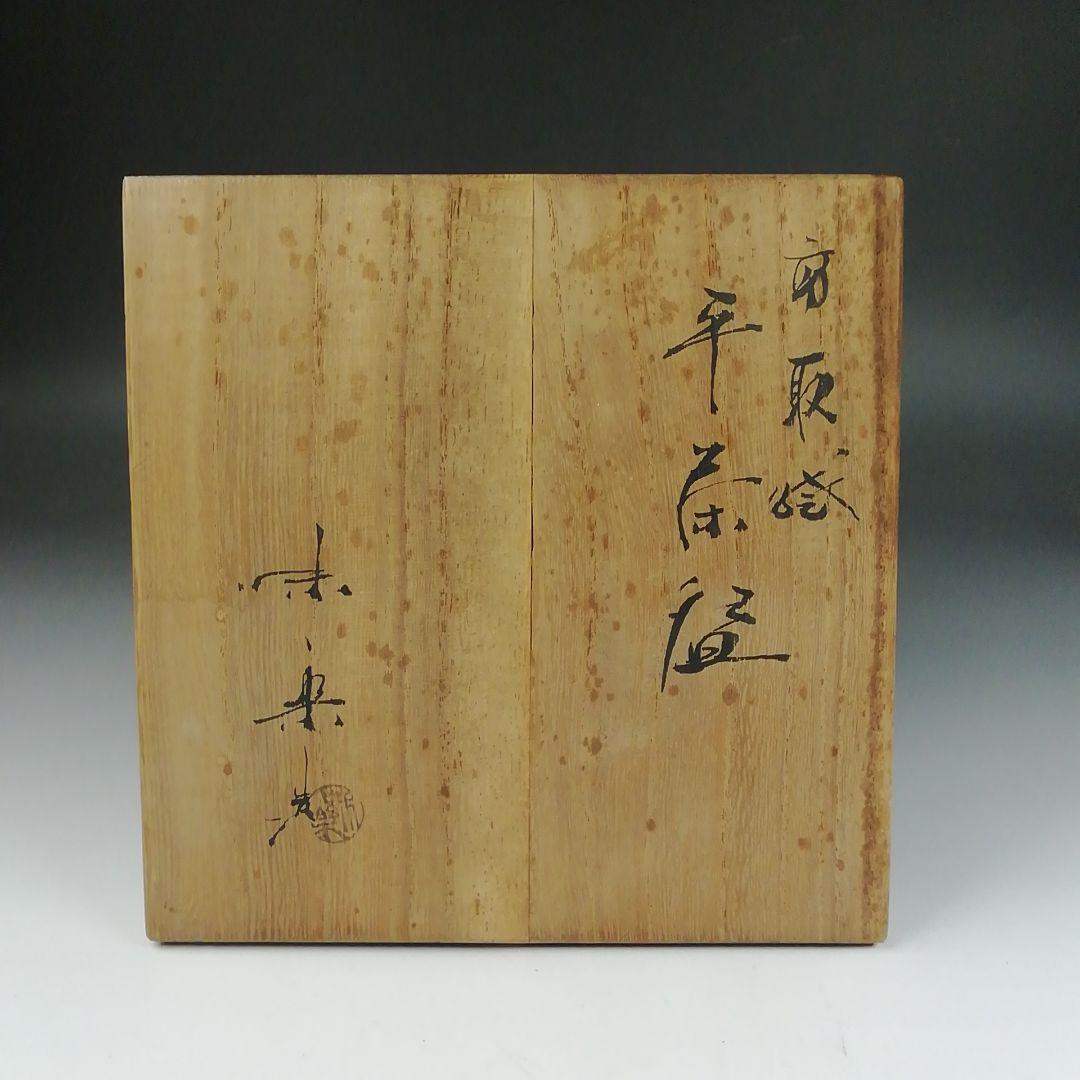 高取焼
平茶盌
味楽造